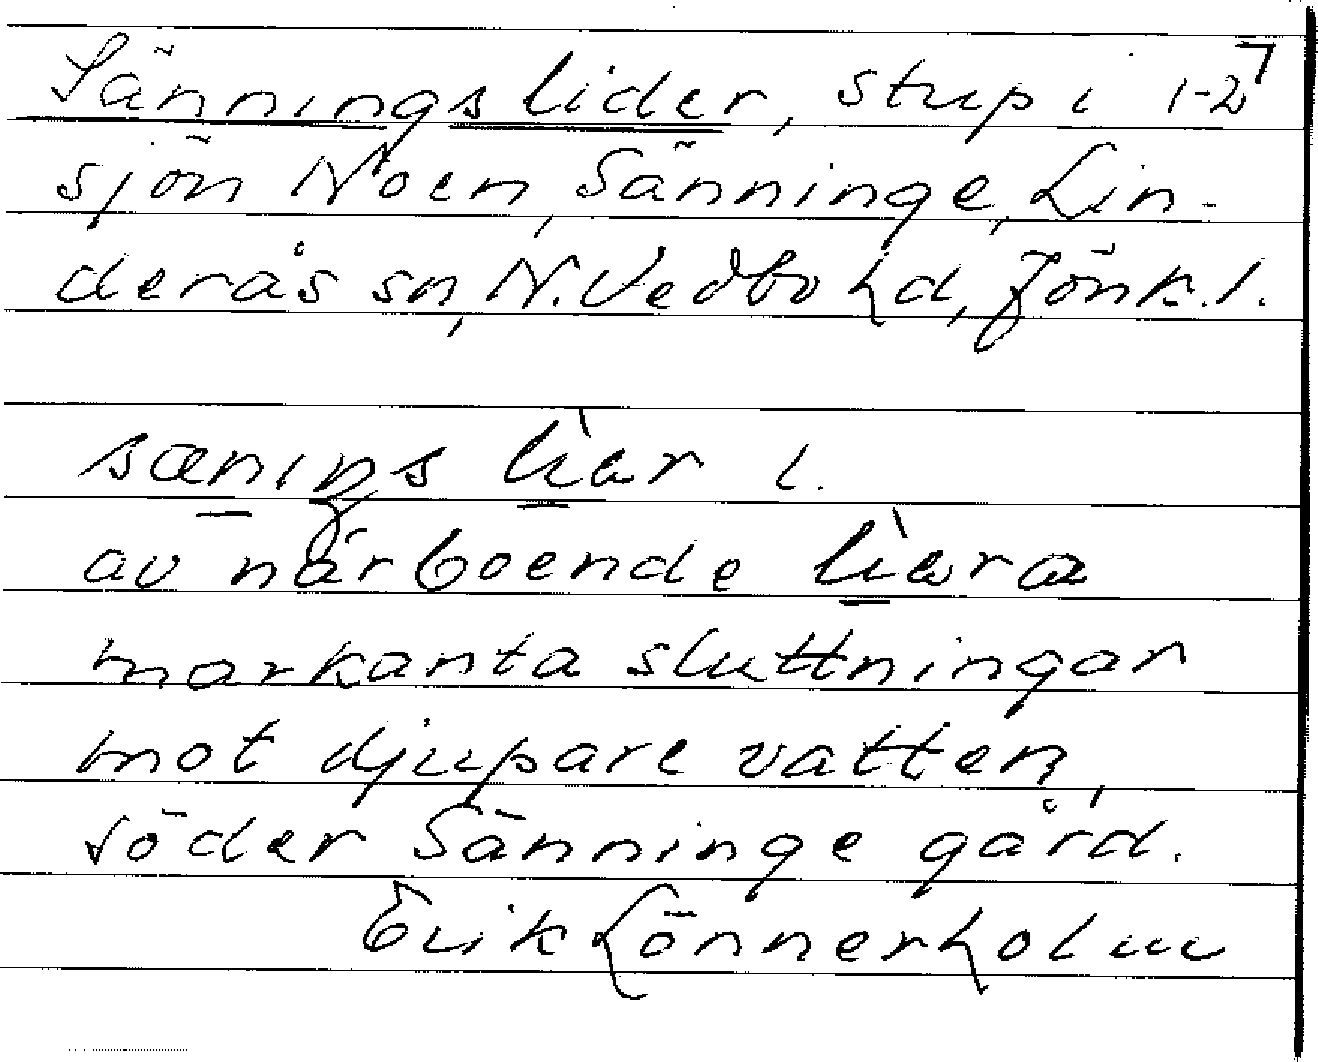 Sänningslider, stup i 1-2⁷
sjön Noen, Sänninge, Lin-
derås sn, N. Vedbo hd, Jönk. l.
av närboende
markanta sluttningar
mot djupare vatten,
söder Sänninge gård.
Erik Lönnerholm